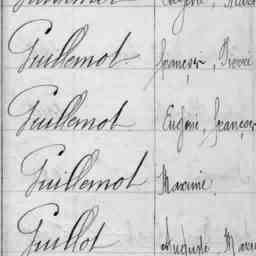 Guillemot François, Pierre
Guillemot Eugène, François
Guillemot Maxime
Guillot Auguste, Marie